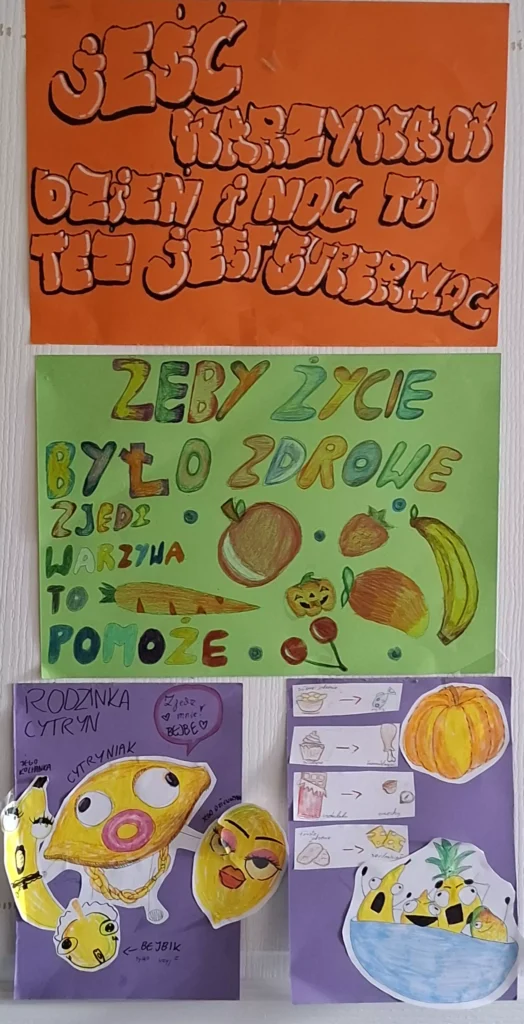 JEŚĆ
WARZYWA W
DZIEŃ i NOC TO
TEŻ JEST SUPERMOC
ŻEBY ŻYCIE
BYŁO ZDROWE
ZJEDZ
WARZYWA
TO
POMOŻE
RODZINKA
CYTRYN
Zjedz
mnie
BEJBE
JEGO
KOCHANKA
CYTRYNIAK
← BEJBIK